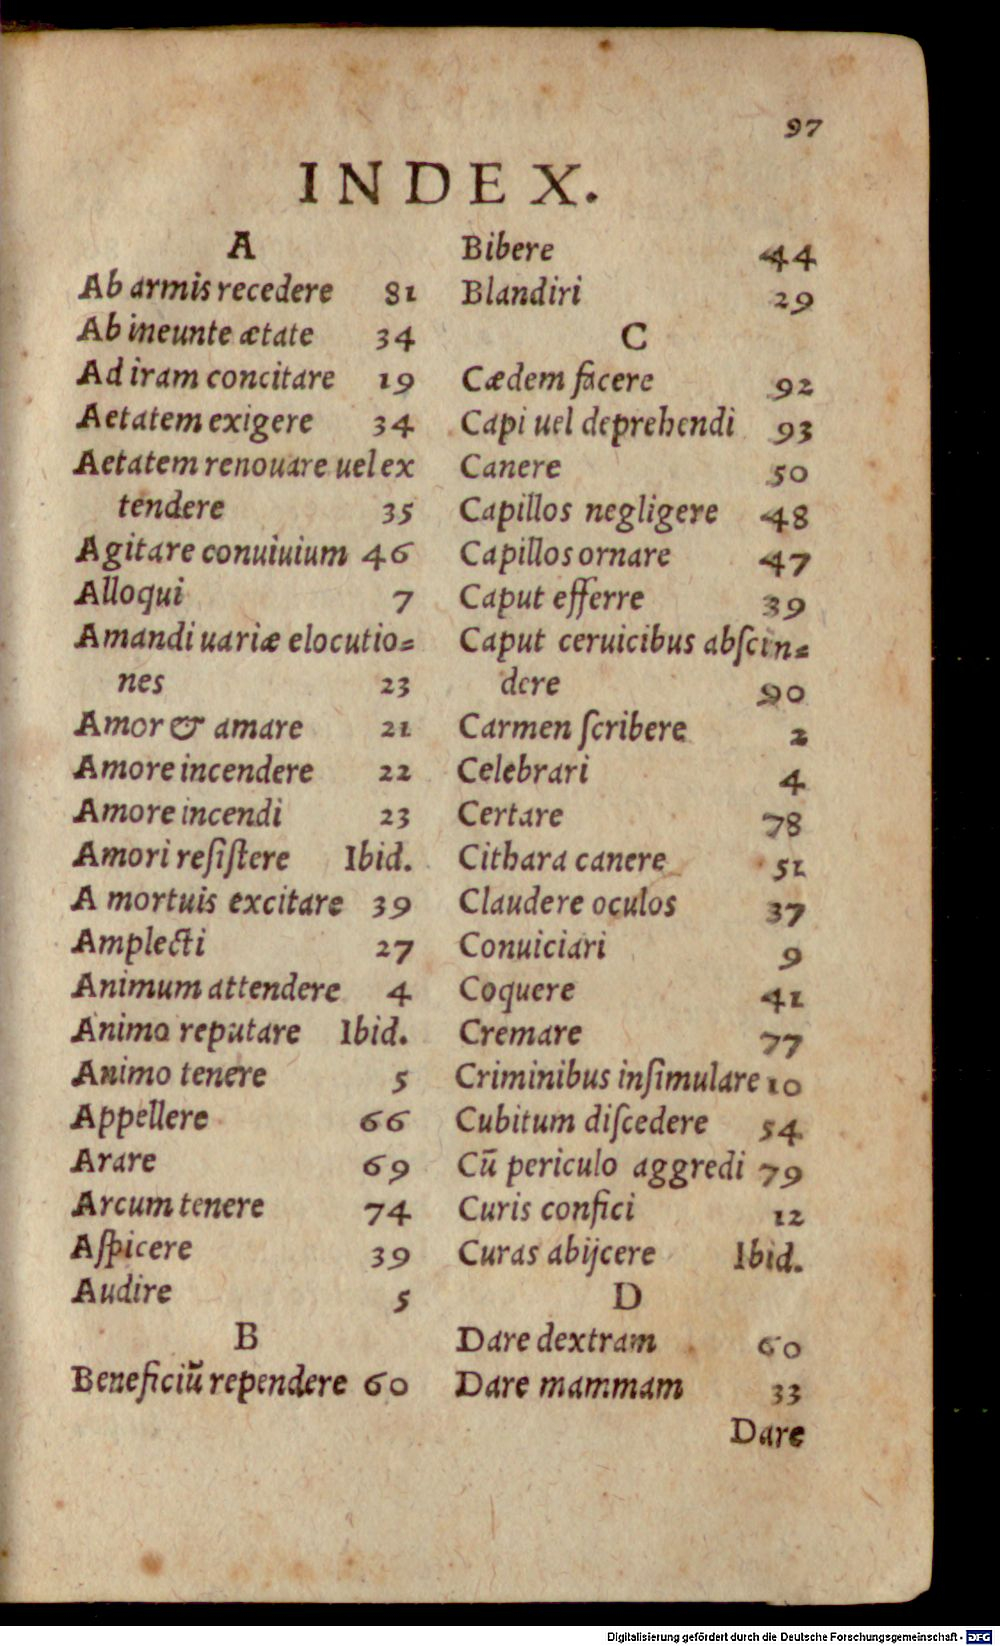 97
INDEX.
A
Ab armis recedere 81
Ab ineunte ætate 34
Ad iram concitare 19
Aetatem exigere 34
Aetatem renouare uel ex
tendere 35
Agitare conuiuium 46
Alloqui 7
Amandi uariæ elocutio=
nes 23
Amor & amare 21
Amore incendere 22
Amore incendi 23
Amori reſiſtere Ibid.
A mortuis excitare 39
Amplecti 27
Animum attendere 4
Animo reputare Ibid.
Animo tenere 5
Appellere 66
Arare 69
Arcum tenere 74
Aſpicere 39
Audire 5
B
Beneficiũ rependere 60
Bibere 44
Blandiri 29
C
Cædem facere 92
Capi uel deprehendi 93
Canere 50
Capillos negligere 48
Capillos ornare 47
Caput efferre 39
Caput ceruicibus abſcin=
dere 90
Carmen ſcribere 2
Celebrari 4
Certare 78
Cithara canere 51
Claudere oculos 37
Conuiciari 9
Coquere 41
Cremare 77
Criminibus inſimulare 10
Cubitum diſcedere 54
Cũ periculo aggredi 79
Curis confici 12
Curas abijcere Ibid.
D
Dare dextram 60
Dare mammam 33
Dare
Digitalisierung gefördert durch die Deutsche Forschungsgemeinschaft - DFG